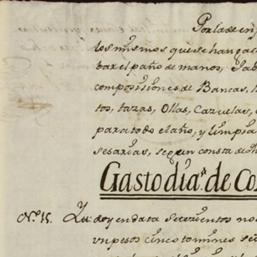 Por la de en
los mismos que se han gaca
bar el paño de manos, Jab
composiciones de Bancas, 
tos, tazas, Ollas, Cazuelas,
para todo el año, y limpia
sesarias, segun consta de
Gasto diaº de Co
Nº 15. Que doy en data Setecientos no
un pesos cinco tomines se